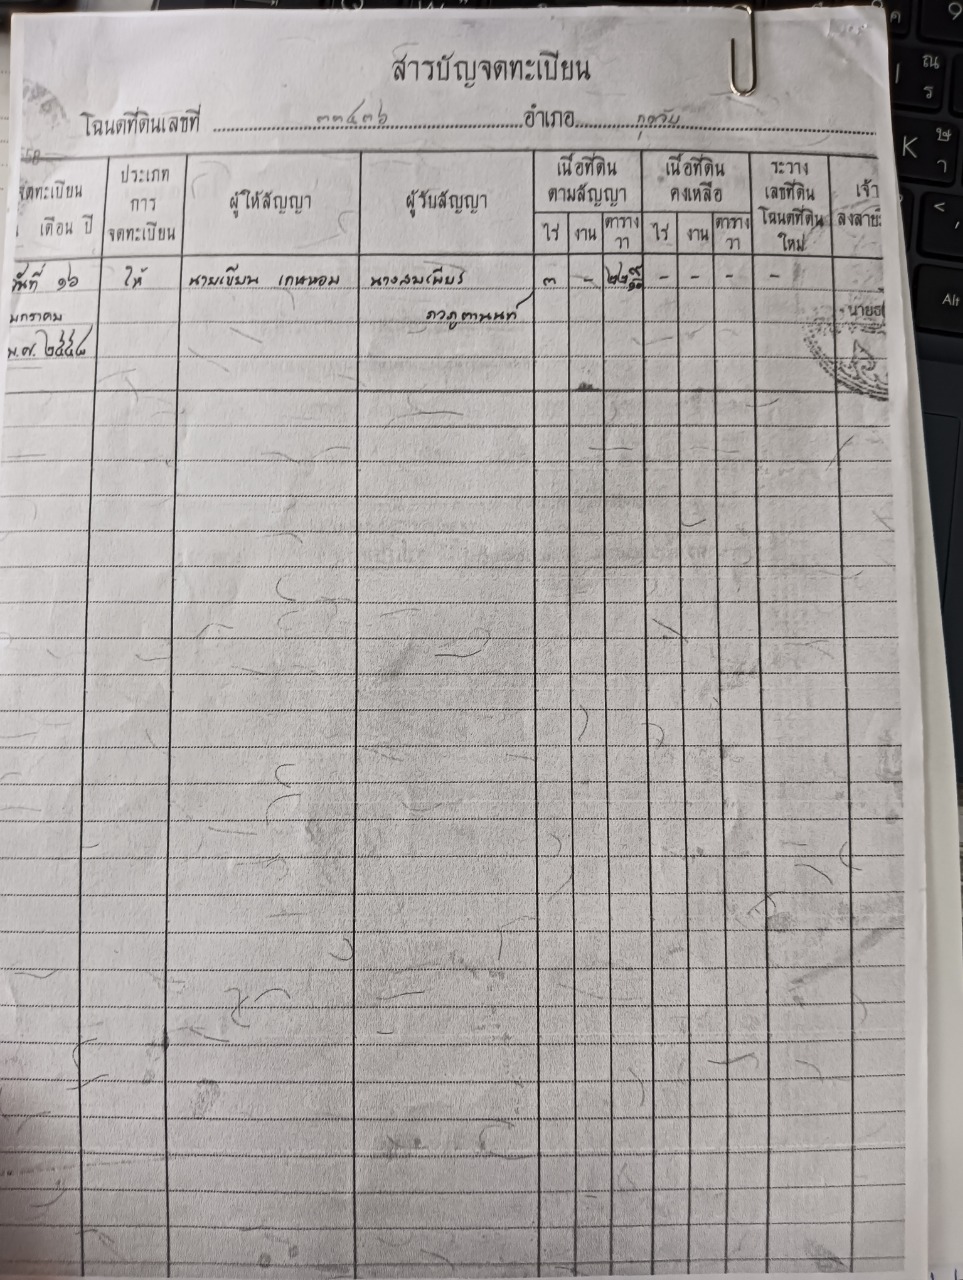 สารบัญจดทะเบียน
โฉนดที่ดินเลขที่ ๓๓๔๓๖ อำเภอ
จดทะเบียน
เดือน ปี
ประเภท
การ
จดทะเบียน
ผู้ให้สัญญา
ผู้รับสัญญา
เนื้อที่ดิน
ตามสัญญา
ไร่ งาน ตาราง
วา
เนื้อที่ดิน
คงเหลือ
ไร่ งาน ตาราง
วา
ระวาง
เลขที่ดิน
โฉนดที่ดิน
ใหม่
เจ้า
ลงลาย
วันที่ ๑๖ ให้ นายเขียน เกษหอม นางสมเพียร ๓ - - - - -
มกราคม ภวภูตานนท์ นาย
พ.ศ. ๒๕๕๘